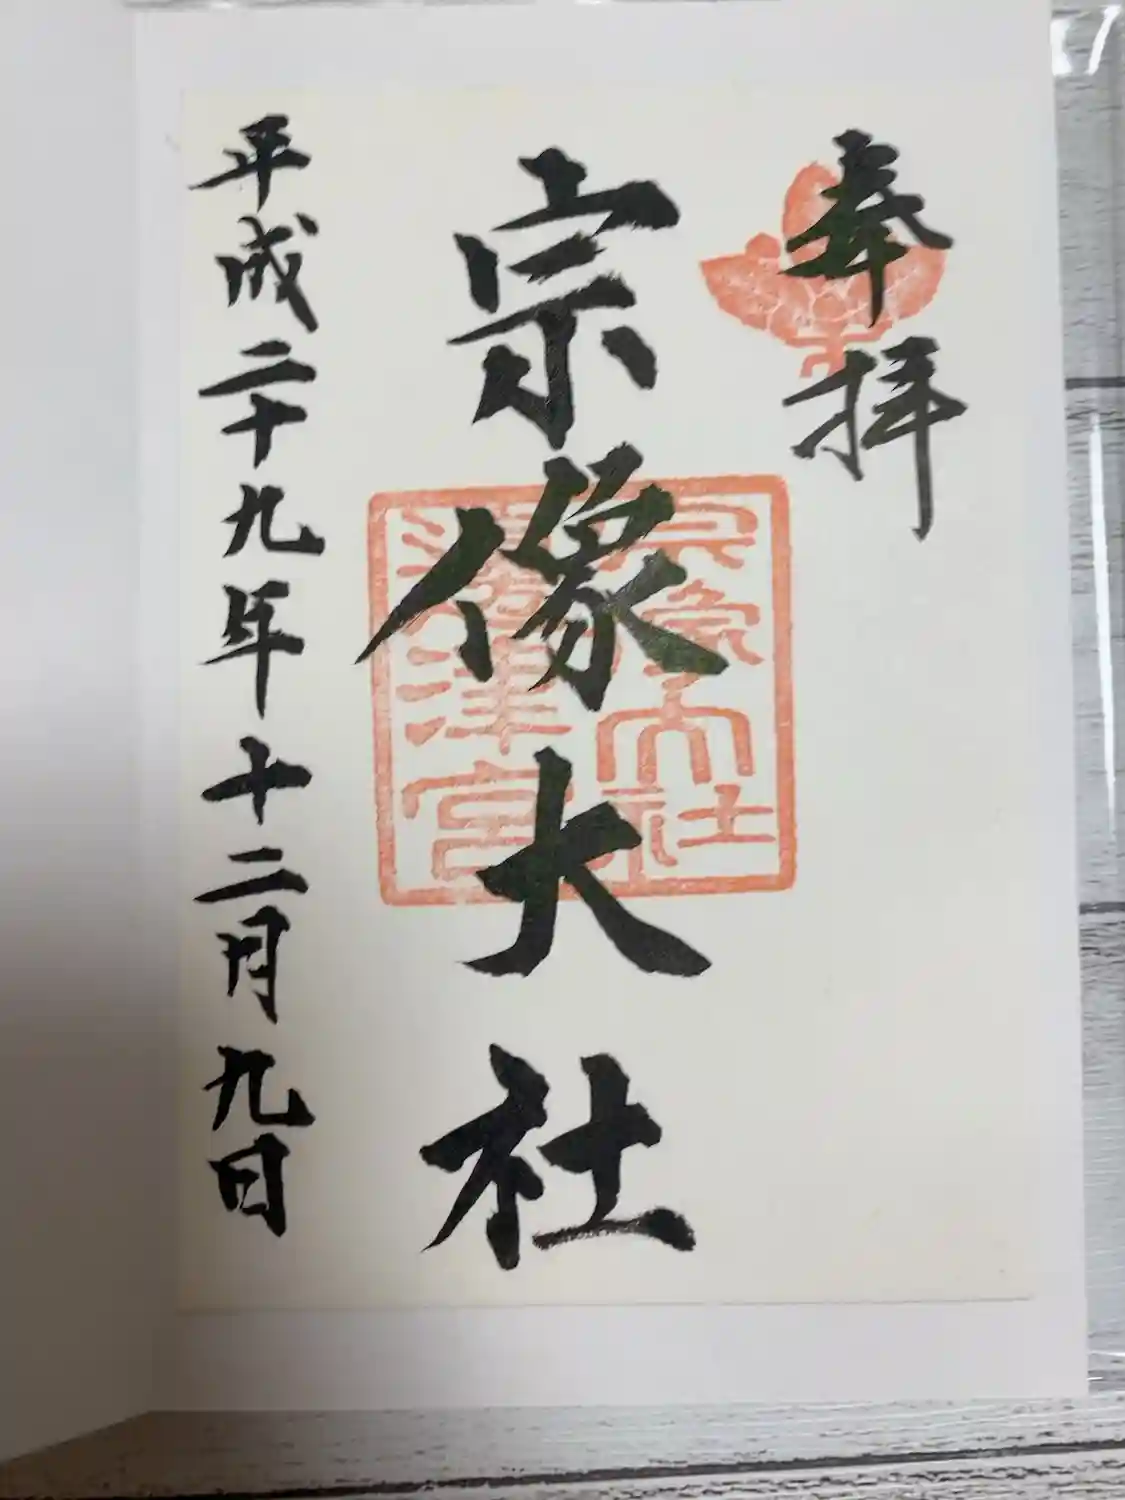 奉拝
宗像大社
宗像大社
津宮
平成二十九年十二月九日